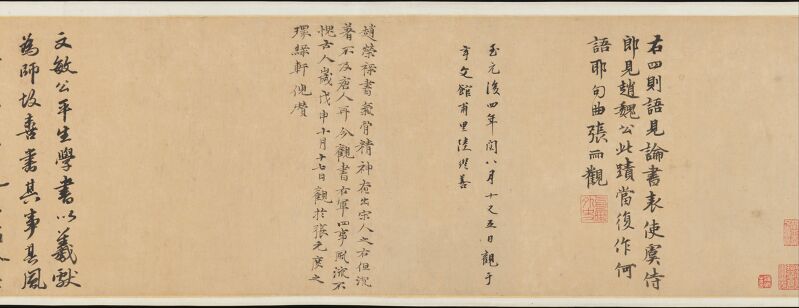 右四則語見論書表使虞侍
郎見趙魏公此蹟當復作何
語耶句曲張雨觀
至元後四年閏八月十又五日觀于
玄文館甫里陸繼善
趙榮祿書氣骨精神在出宋人之右但沉
著不及唐人耳今觀書右軍四事風流不
愧古人歲戊申十月十七日觀於張元度之
環綠軒
文敏公平生學書以羲獻
為師故善書其事甚風